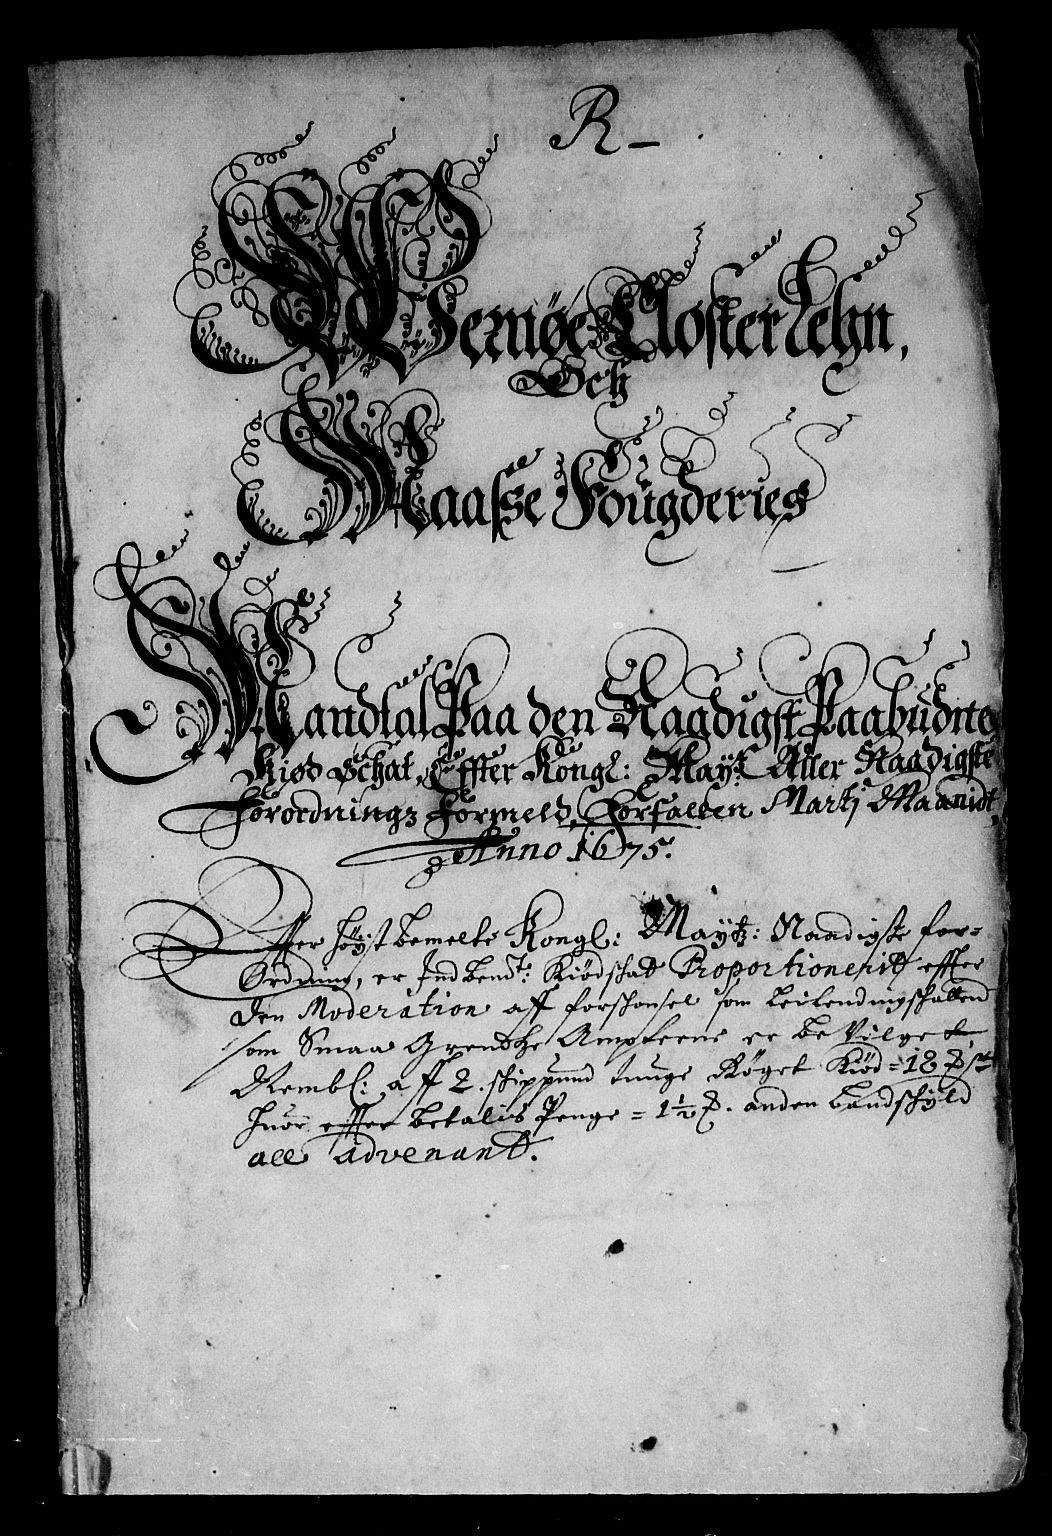 R –
Wernøe Closter Lehn,
Och
Maasse Fougderies
Mandtal Paa den Naadigst Paabudne
Kiød Schat, Effter Kongl: Mayt: Aller Naadigste
Forordnings Formeld, Forfalden Martj Maanidt,
Anno 1675.
Effter høyst bemelte Kongl: Maytz: Naadigste for-
Ordning, er Ind bendt: Kiødschat Proportionerit effter
den Moderation aff forschonsel som Leilendingschatten
som Smaa Grendsze Ampteene er be Vilget,
Nembl: aff 2. schippund tunge Røget Kiød = 18 ℔ st
huor effter betalis Penge = 1½ ℔. anden Landschyld
all advenant.